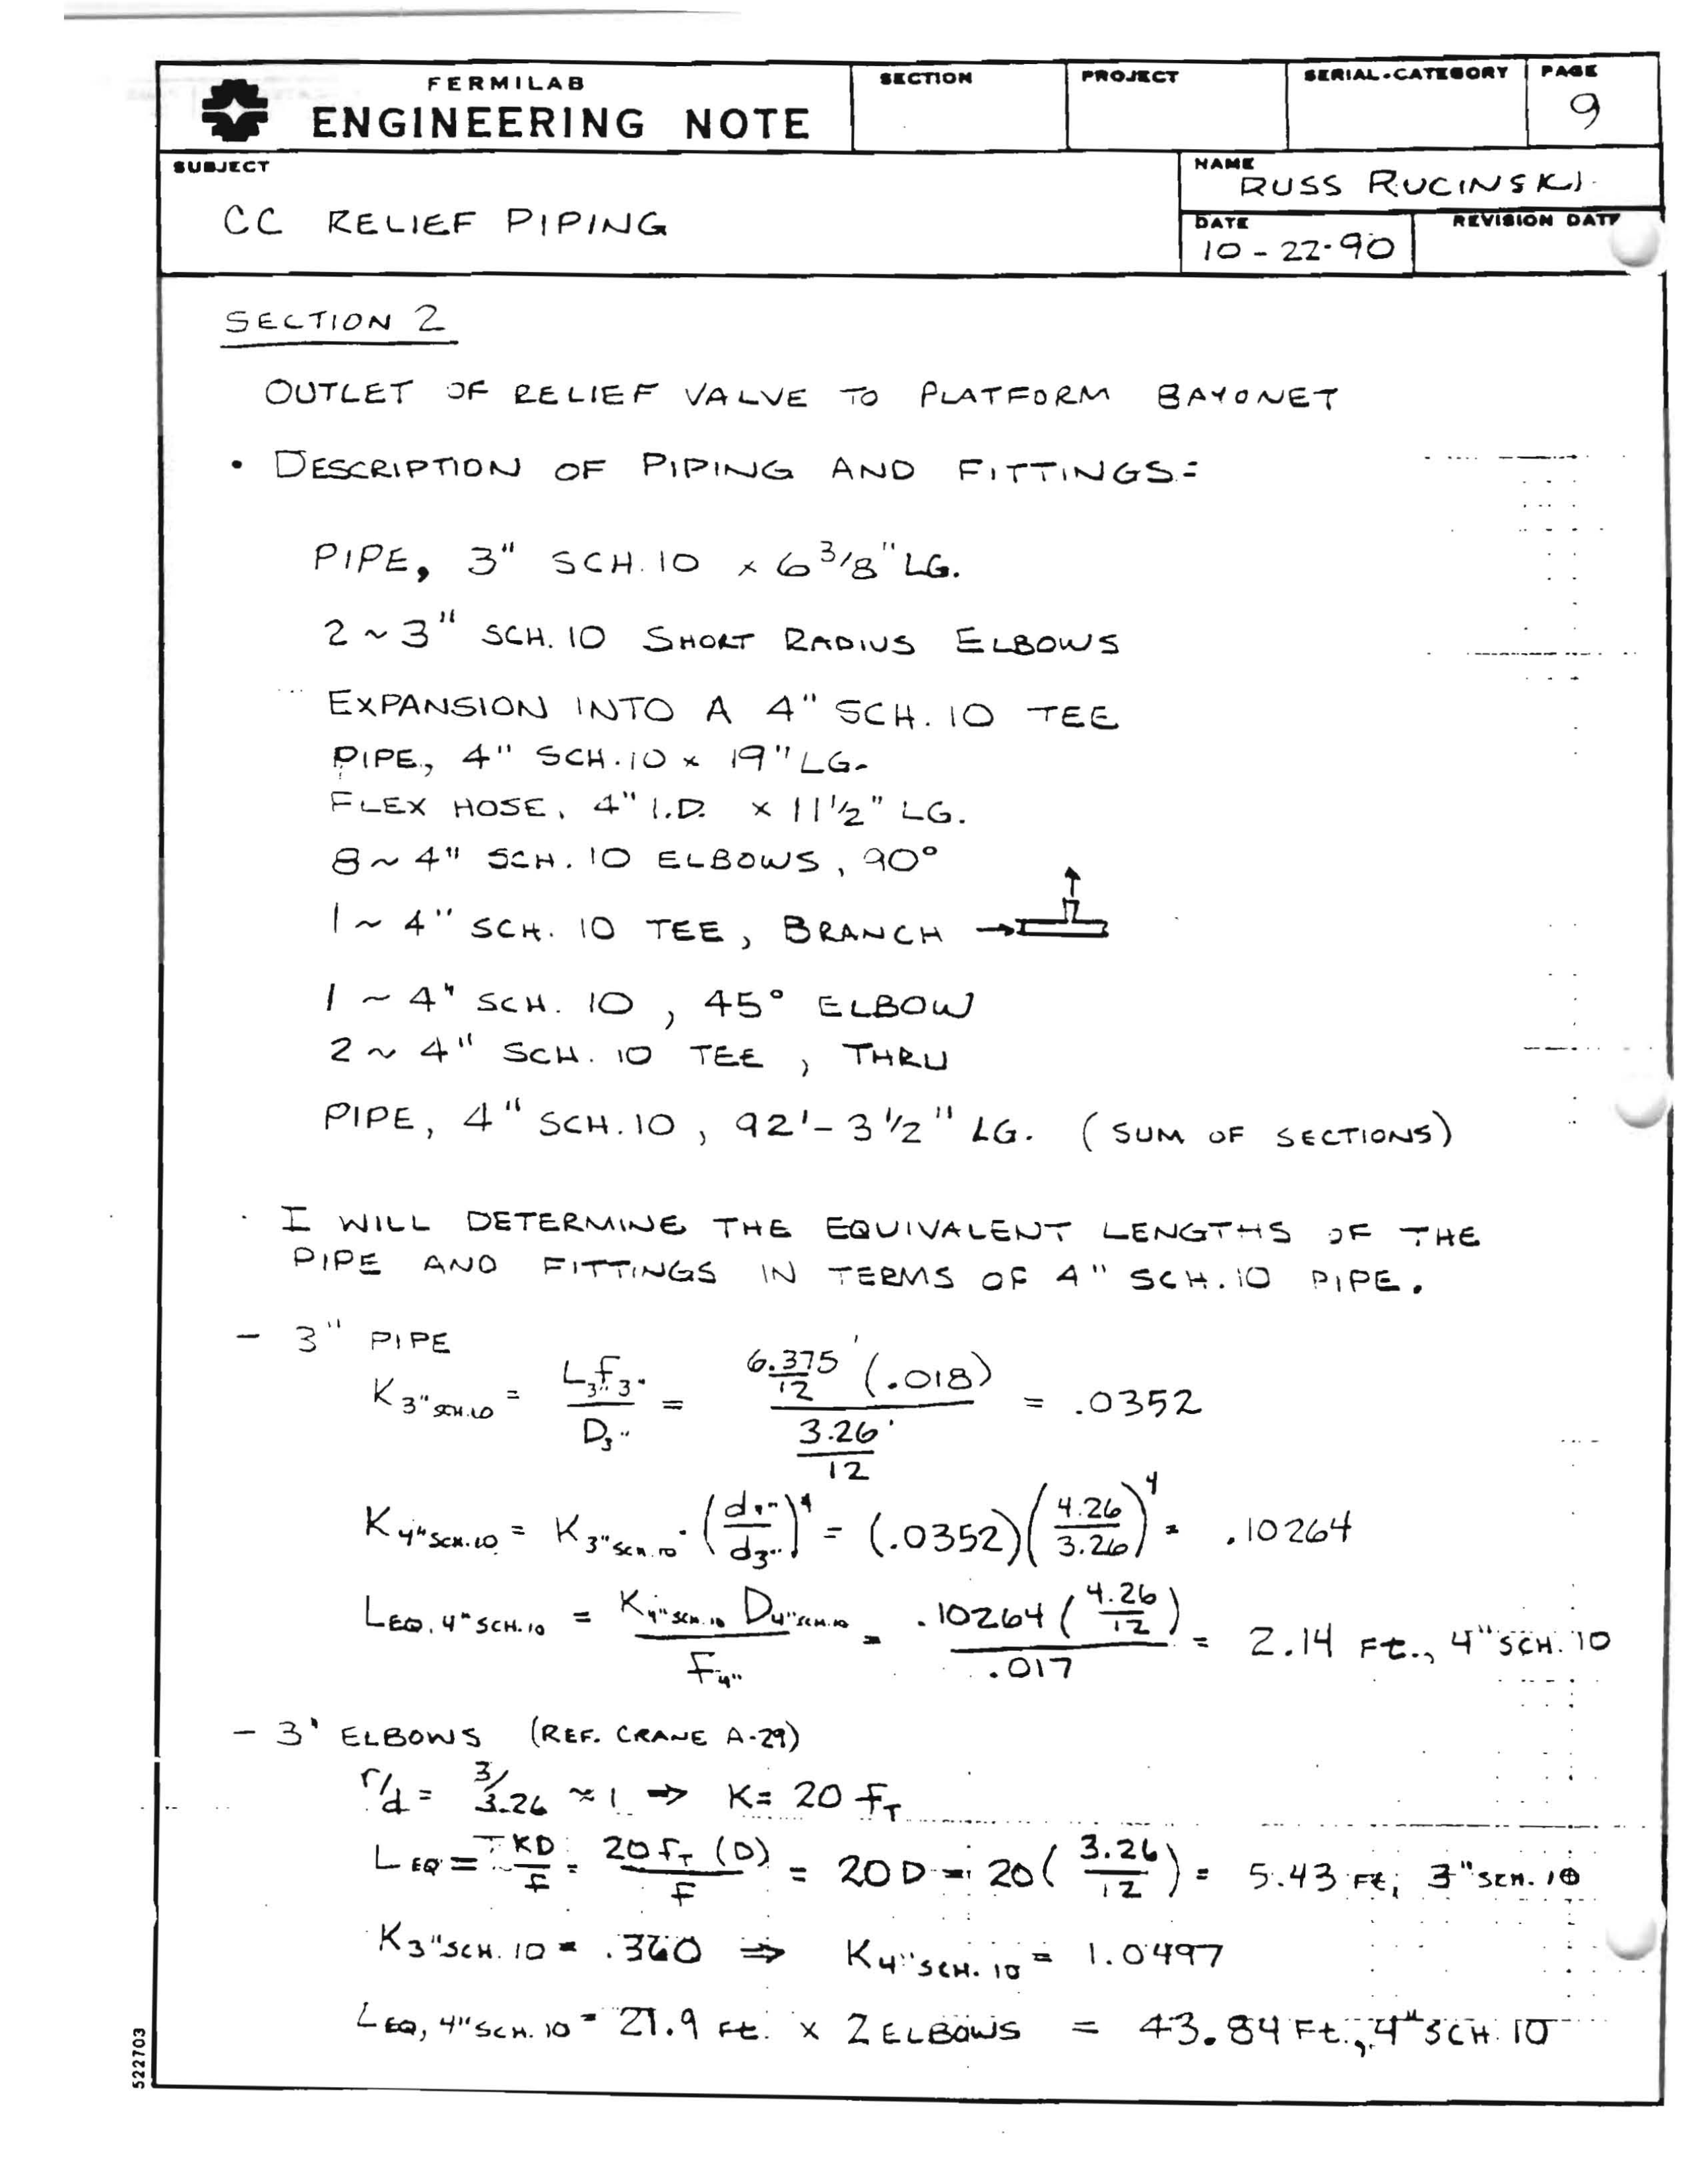 FERMILAB
ENGINEERING NOTE
SECTION
PROJECT
SERIAL-CATEGORY
PAGE
9
SUBJECT
CC RELIEF PIPING
NAME
RUSS RUCINSKI
DATE
10-22-90
REVISION DATE
SECTION 2
OUTLET OF RELIEF VALVE TO PLATFORM BAYONET
• DESCRIPTION OF PIPING AND FITTINGS:
PIPE, 3" SCH. 10 x 6 3/8" LG.
2 ~ 3" SCH. 10 SHORT RADIUS ELBOWS
EXPANSION INTO A 4" SCH. 10 TEE
PIPE, 4" SCH. 10 x 19" LG.
FLEX HOSE, 4" I.D. x 11 1/2" LG.
8 ~ 4" SCH. 10 ELBOWS, 90°
1 ~ 4" SCH. 10 TEE, BRANCH →
1 ~ 4" SCH. 10, 45° ELBOW
2 ~ 4" SCH. 10 TEE, THRU
PIPE, 4" SCH. 10, 92'- 3 1/2" LG. (SUM OF SECTIONS)
· I WILL DETERMINE THE EQUIVALENT LENGTHS OF THE
PIPE AND FITTINGS IN TERMS OF 4" SCH. 10 PIPE.
- 3" PIPE
K3"SCH.10 = L3"f3" / D3" = (6.375'/12 (.018)) / (3.26'/12) = .0352
K4"SCH.10 = K3"SCH.10 · (d4"/d3")^4 = (.0352)(4.26/3.26)^4 = .10264
LEQ, 4"SCH.10 = K4"SCH.10 D4"SCH.10 / F4" = .10264 (4.26/12) / .017 = 2.14 Ft., 4" SCH. 10
- 3" ELBOWS (REF. CRANE A-29)
r/d = 3/3.26 ≈ 1 ⇒ K = 20 fT
LEQ = KD/F = 20 fT (D) / F = 20 D = 20 (3.26/12) = 5.43 Ft, 3" SCH. 10
K3"SCH. 10 = .360 ⇒ K4"SCH. 10 = 1.0497
LEQ, 4"SCH. 10 = 21.9 Ft. x 2 ELBOWS = 43.84 Ft., 4" SCH. 10
522703